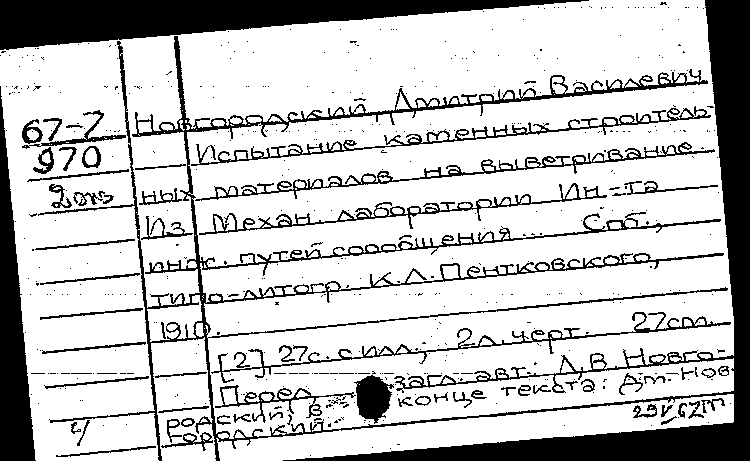 Новгородский, Дмитрий Василевич
67-7
970
Испытание каменных строитель-
2 экз
ных материалов на выветривание
Из Механ. лаборатории Ин-та
инж. путей сообщения... Спб.,
типо-литогр. К.Л. Пентковского,
1910.
[2], 27с. с илл.; 2л. черт. 27см.
Перед загл. авт.: Д.В. Новго-
родский; в конце текста: Дм. Нов-
городский.